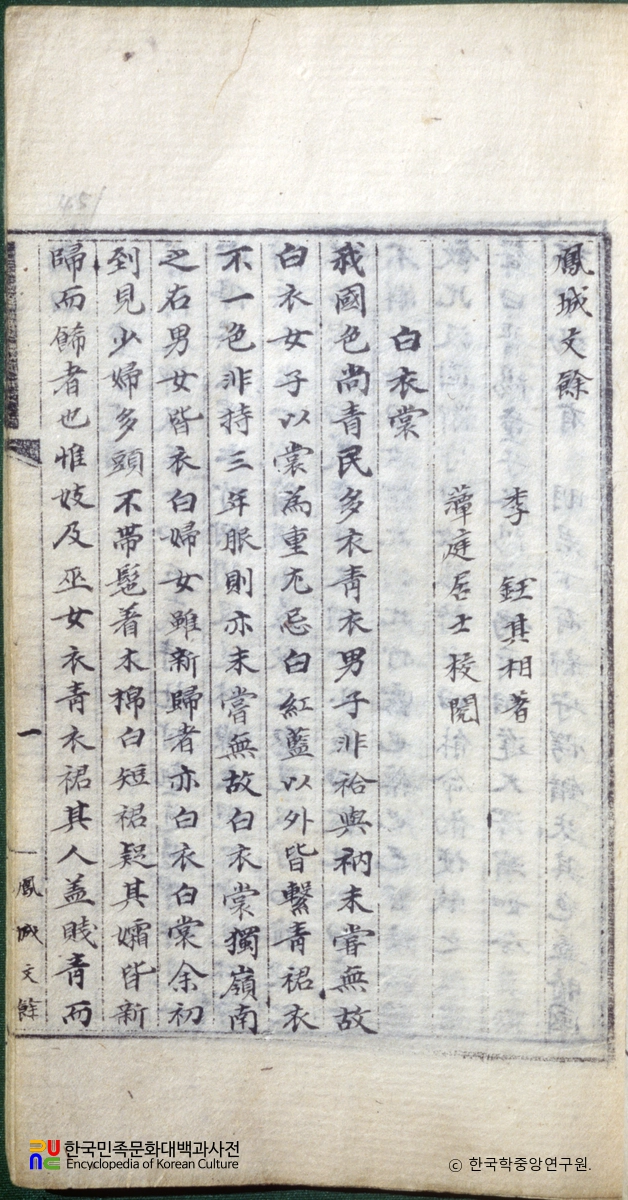 鳳城文餘
李 鈺其相著
薄庭居士校閱
白衣裳
我國色尚青民多衣青衣男子非袷與衲未嘗無故
白衣女子以裳為重尤忌白紅藍以外皆繫青裙衣
不一色非持三年服則亦未嘗無故白衣裳獨嶺南
之右男女皆衣白婦女雖新歸者亦白衣白裳余初
到見少婦多頭不帶髢着木棉白短裙疑其孀皆新
歸而餙者也惟妓及巫女衣青衣裙其人盖賤青而
一
鳳城文餘
한국민족문화대백과사전
Encyclopedia of Korean Culture
ⓒ 한국학중앙연구원.